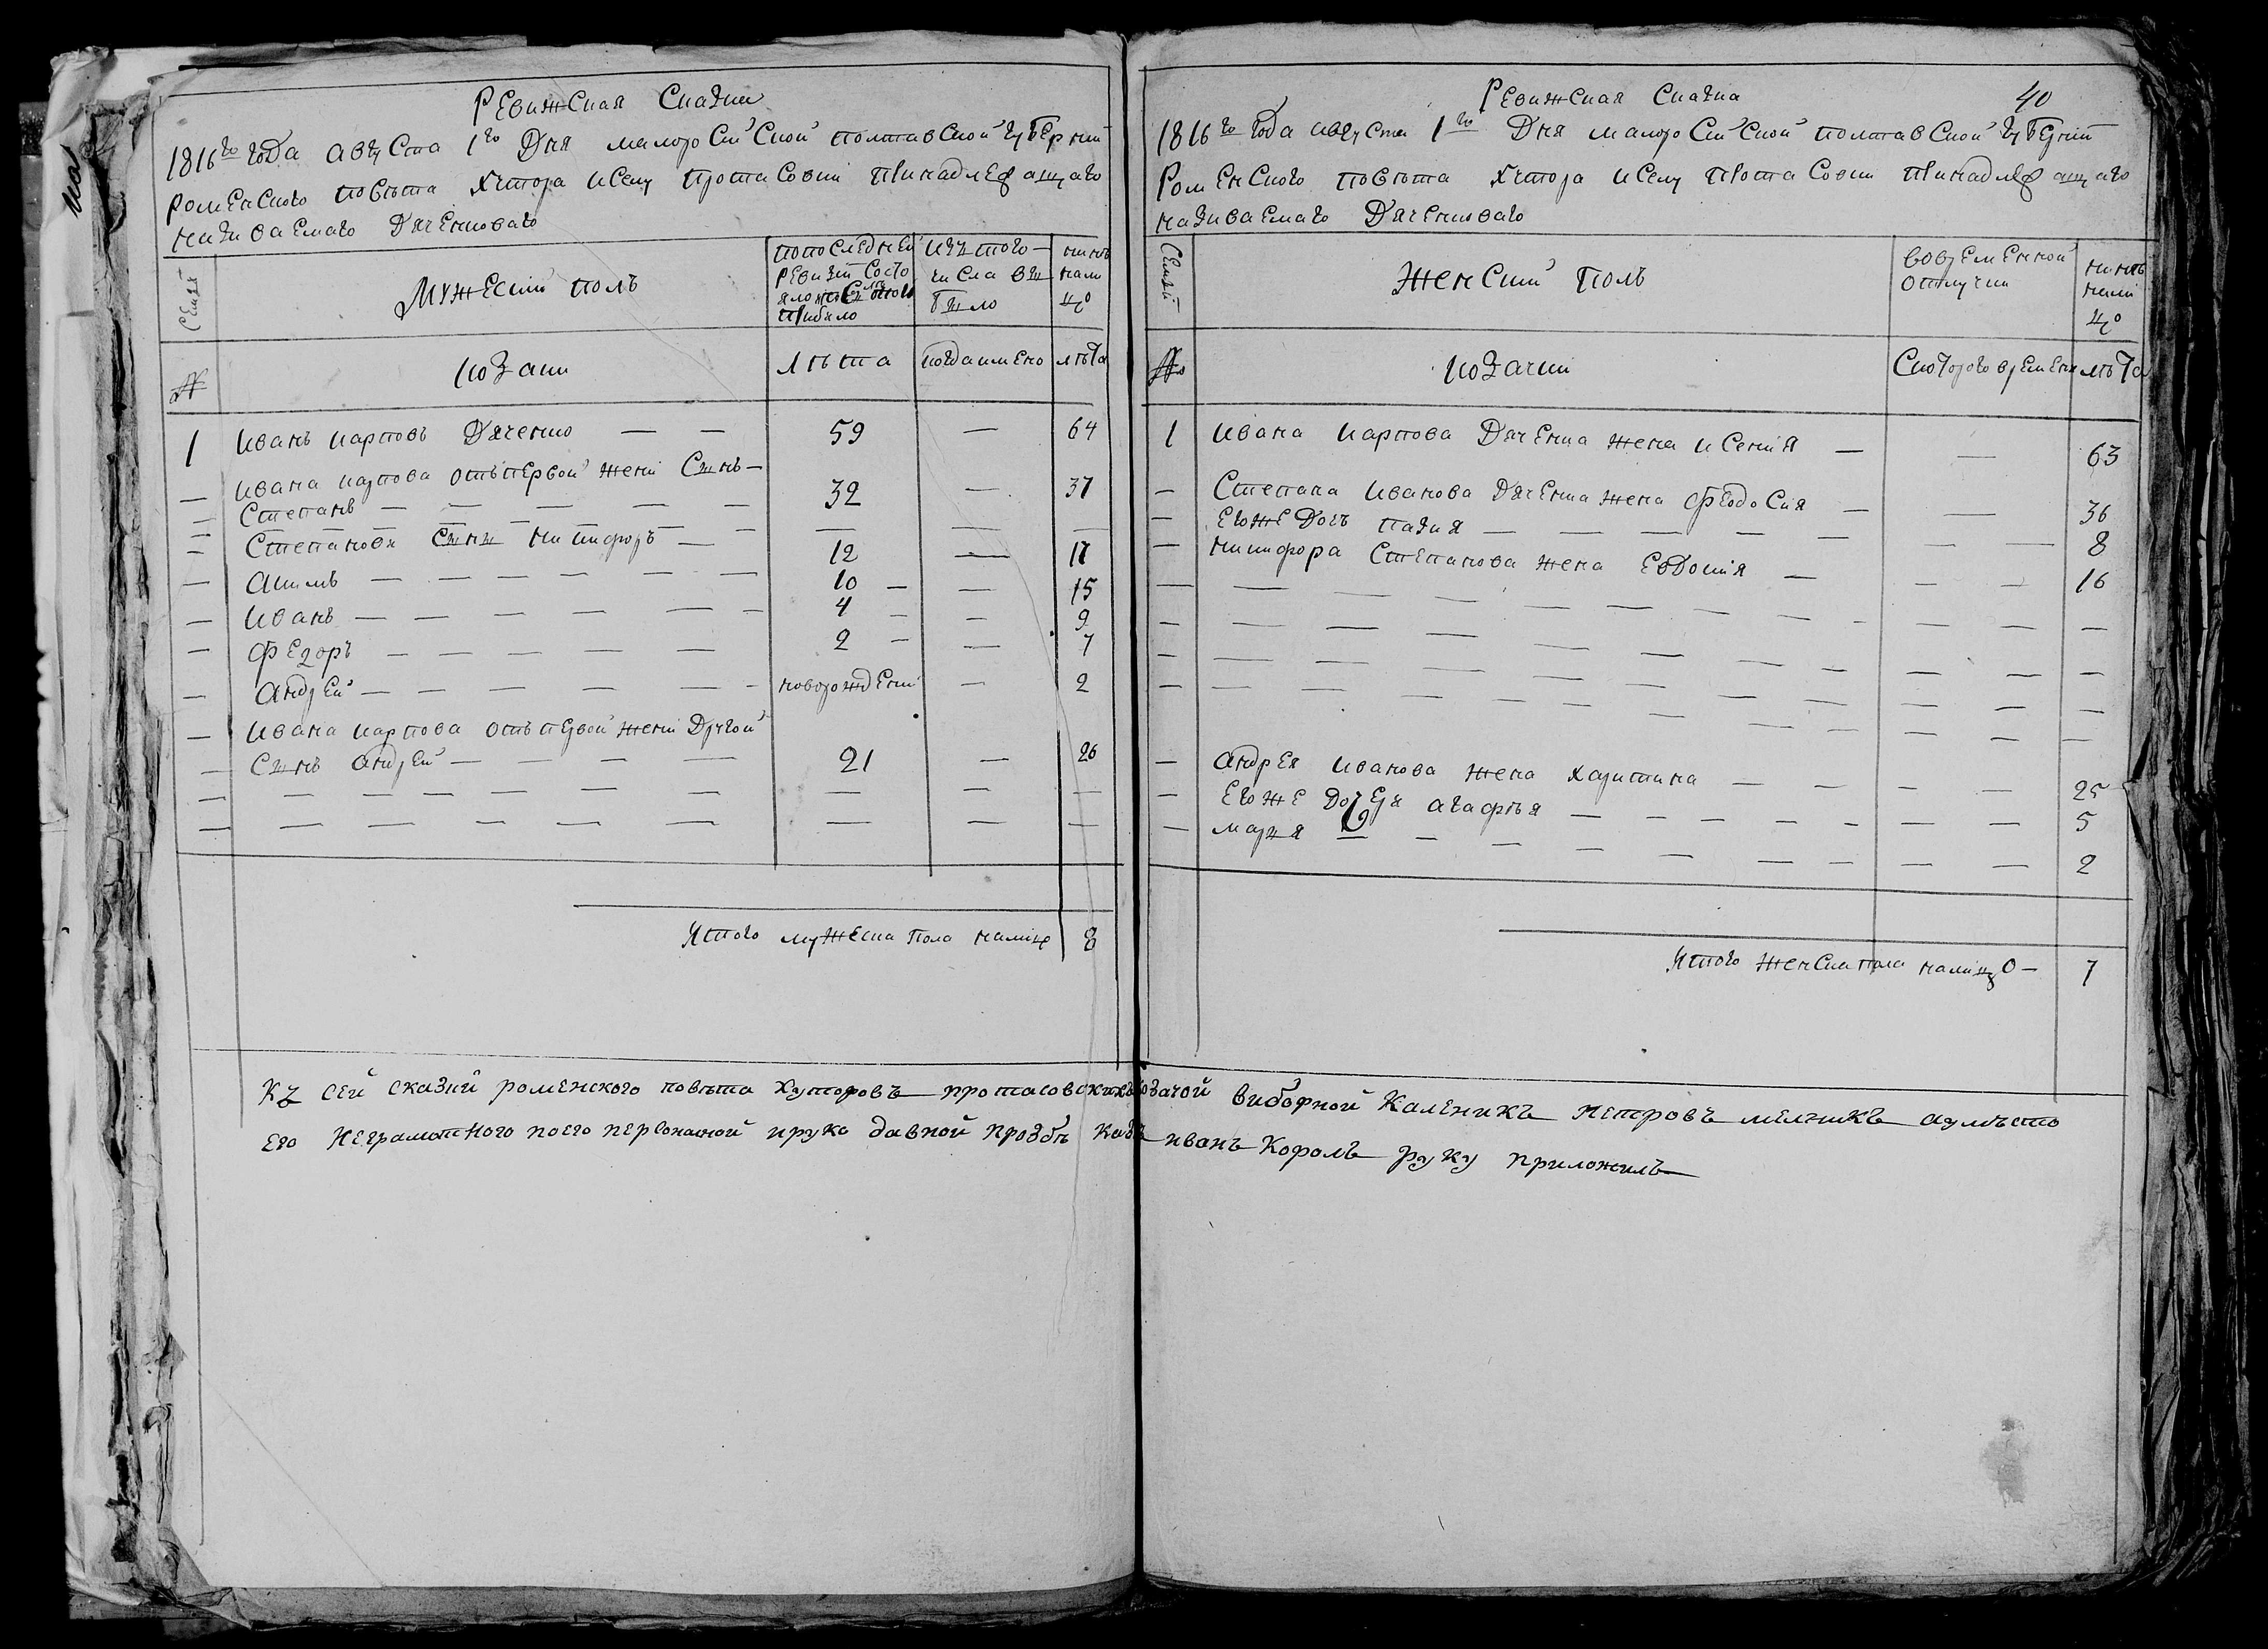 Ревижская Сказка
1816го года августа 1го Дня малоросійской полтавской губерніи
роменского повѣта хутора кселу протасовки принадлежащаго
називаемаго Дяченковаго
Семья
Мужескій полъ
попоследней ревизіи состояло ипослѣ того прибило
изъ того числа выбыло
нинѣ налицо
№
козаки
лѣта
когда имено
лѣта
1 иванъ карповъ Дяченко — — 59 — 64
— ивана карпова отъпервой жени сынъ —
— степанъ — — — — — 32 — 37
— степанови сыни никифоръ — 12 — 17
— акимъ — — — — — — 10 — — 15
— иванъ — — — — — — 4 — — 9
— федоръ — — — — — 2 — — 7
— андрей — — — — — — новорожденій — 2
— ивана карпова отъ первой жени Другой
— сынъ андрей — — — — — 21 — 26
Итого мужеска пола налицо 8
Ревижская Сказка 40
1816го года августа 1го Дня малоросійской полтавской губерній
роменского повѣта хутора кселу протасовки принадлежащаго
називаемаго Дяченковаго
Семьи
Женскій полъ
вовременной отлучки
нинѣ налицо
№
козачки
Скоторого времени
лѣта
1 ивана карпова Дяченка жена ксенія — — 63
— Степана иванова Дяченка жена феодосия — 36
— егоже Дочь пазия — — — — — — 8
— никифора Степанова жена Евдокія — — — 16
— андрея иванова жена харитина — — — — 25
— егоже Дочеря агафѣя — — — — — — 5
— марья — — — — — — — — — — 2
Итого женска пола налицо — 7
Къ сей сказки роменского повѣта хуторовъ протасовскихъ козачой виборной Каленикъ Петровъ мелникъ авмѣсто
его неграмотного поего персоналной ирукодавной прозбѣ козакъ иванъ Король руку приложилъ